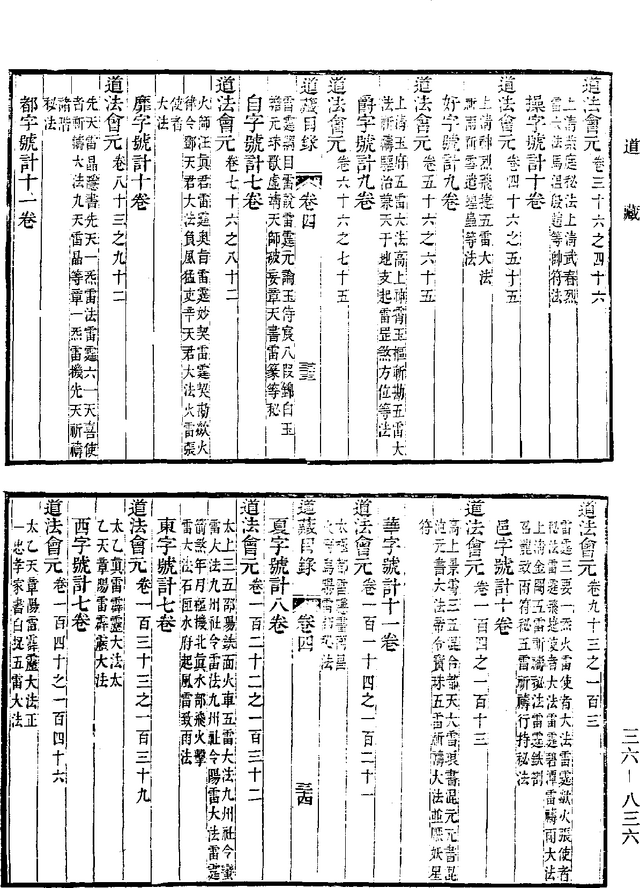 道藏
道法會元 卷三十六之四十六
上清紫庭秘法上清武春烈
雷六法馬溫殷趙等帥符法
操字號計十卷
道法會元 卷四十六之五十五
上清神烈飛捷五雷大法
斬雨斬雷遣瘟蟲等法
好字號計九卷
道法會元 卷五十六之六十五
上清玉府五雷大法高上神霄玉樞斬勘五雷大
法斬瘟驅治蔡天于地支起雷罡煞方位等法
爵字號計九卷
道法會元 卷六十六之七十五
道藏目錄 卷四 三三
雷霆綱目雷說雷霆元論玉侍宸八段錦白玉
蟾元珠歌虛靖天師破妄章天書雷篆等秘
自字號計七卷
道法會元 卷七十六之八十二
火師汪真君雷霆奧旨雷霆妙契雷霆契勅欻火
律令鄧天君大法負風猛吏辛天君大法火雷張
使者
大法
靡字號計十卷
道法會元 卷八十三之九十二
先天雷晶隱書先天一炁雷法雷霆六一天喜使
者祈禱大法九天雷晶等章一炁雷機先天祈禱
諸階
秘法
都字號計十一卷
道法會元 卷九十三之一百三
雷霆三要一炁火雷使者大法雷霆欻火張使者
秘法雷霆飛捷使者大法雷霆碧潭雷禱雨大法
上清金闕五雷祈禱秘法雷霆鐵劄
召龍致雨符秘五雷祈禱行持秘法
邑字號計十卷
道法會元 卷一百四之一百十三
高上景霄三五混合都天大雷琅書混元元書
洎元書大法帝令寶珠五雷祈禱大法並壓妖星
符
華字號計十一卷
道法會元 卷一百一十四之一百二十一
道藏目錄 卷四 三四
夏字號計八卷
道法會元 卷一百二十二之一百三十二
太上三五邵陽鐵面火車五雷大法九州社令蠻
雷大法九州社令雷法九州社令陽雷大法雷霆
箭煞年月樞機北真水部飛火擊
雷大法石匣水府起風雲致雨法
東字號計七卷
道法會元 卷一百三十三之一百三十九
太乙真雷霹靂大法太
乙天章陽雷霹靂大法
西字號計七卷
道法會元 卷一百四十之一百四十六
太乙天章陽雷霹靂大法正
一忠孝家書白捉五雷大法
三六－八三六